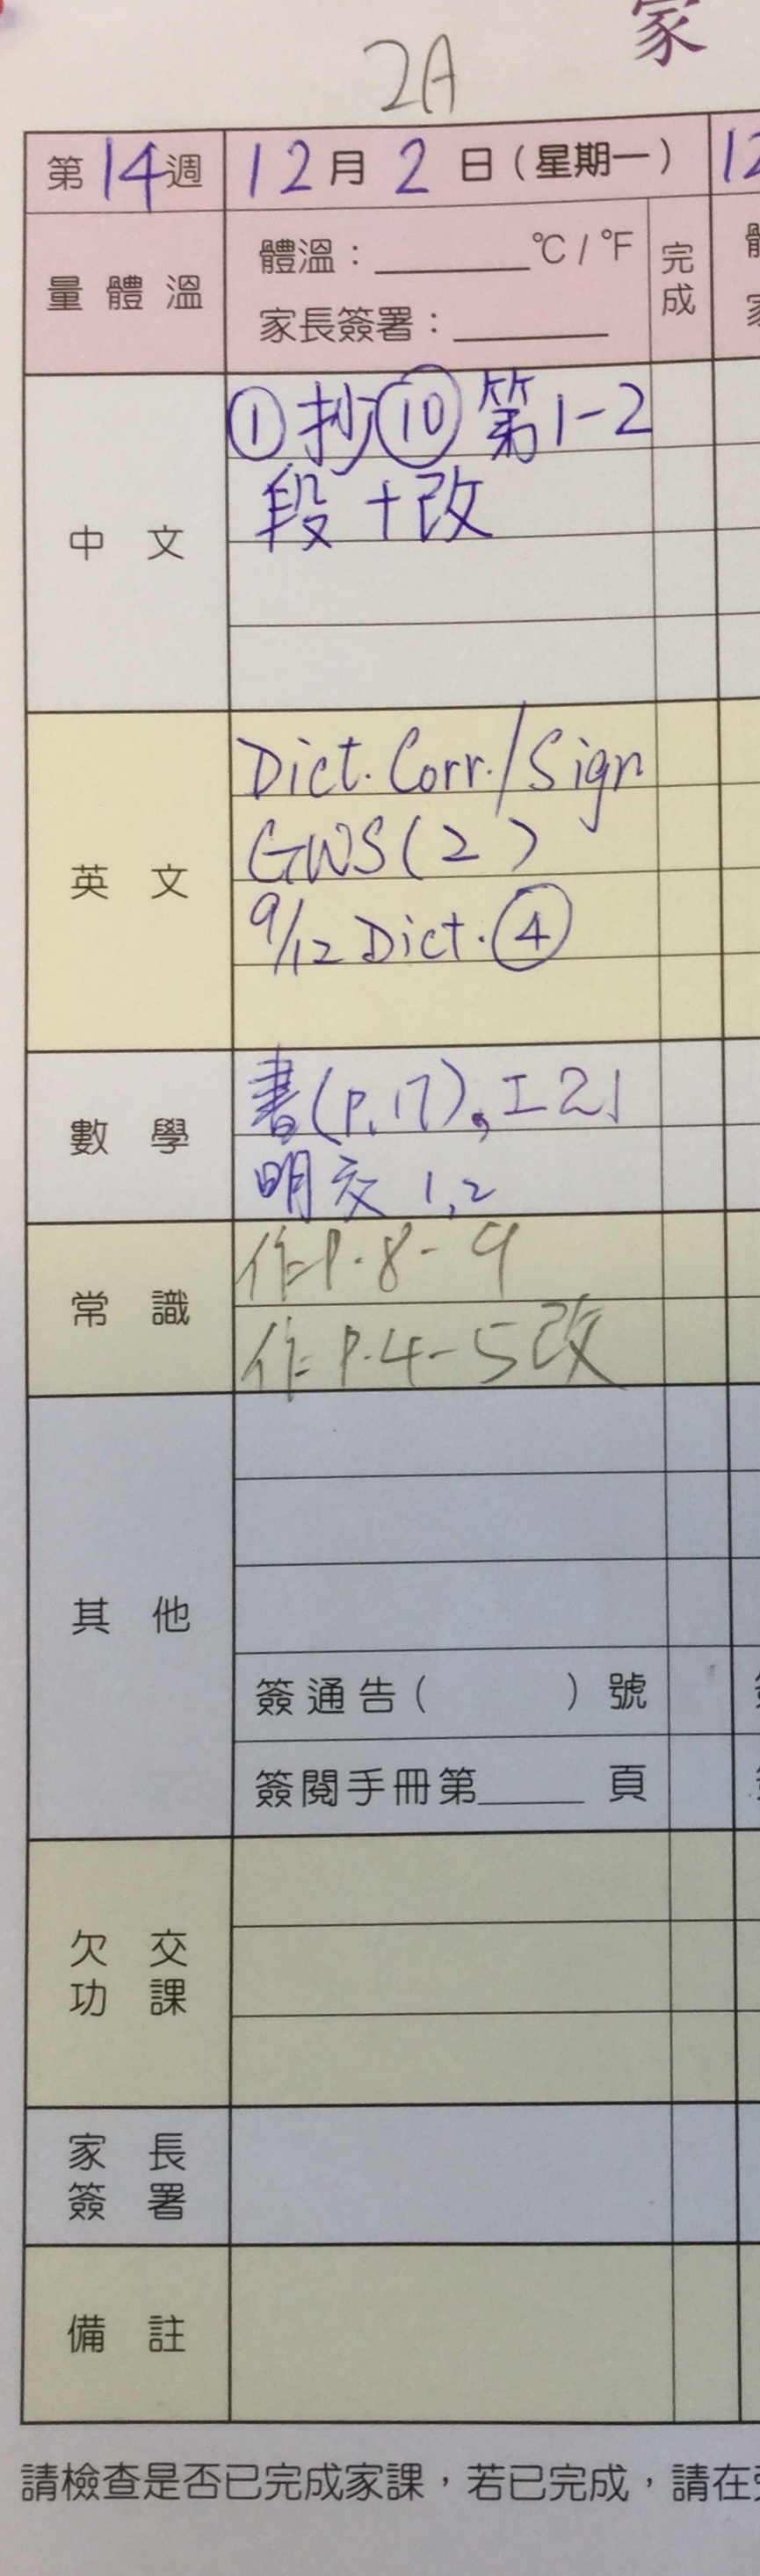 家
2A
第14週 12月2日(星期一) 12
量體溫 體溫：______°C / °F 完成
家長簽署：______
中文 ①抄⑩第1-2
段+改
英文 Dict. Corr./Sign
GWS(2)
9/12 Dict. ④
數學 書(p.17), 工21
明交 1,2
常識 作P.8-9
作P.4-5改
其他
簽通告( )號
簽閱手冊第______頁
欠交功課
家長簽署
備註
請檢查是否已完成家課，若已完成，請在